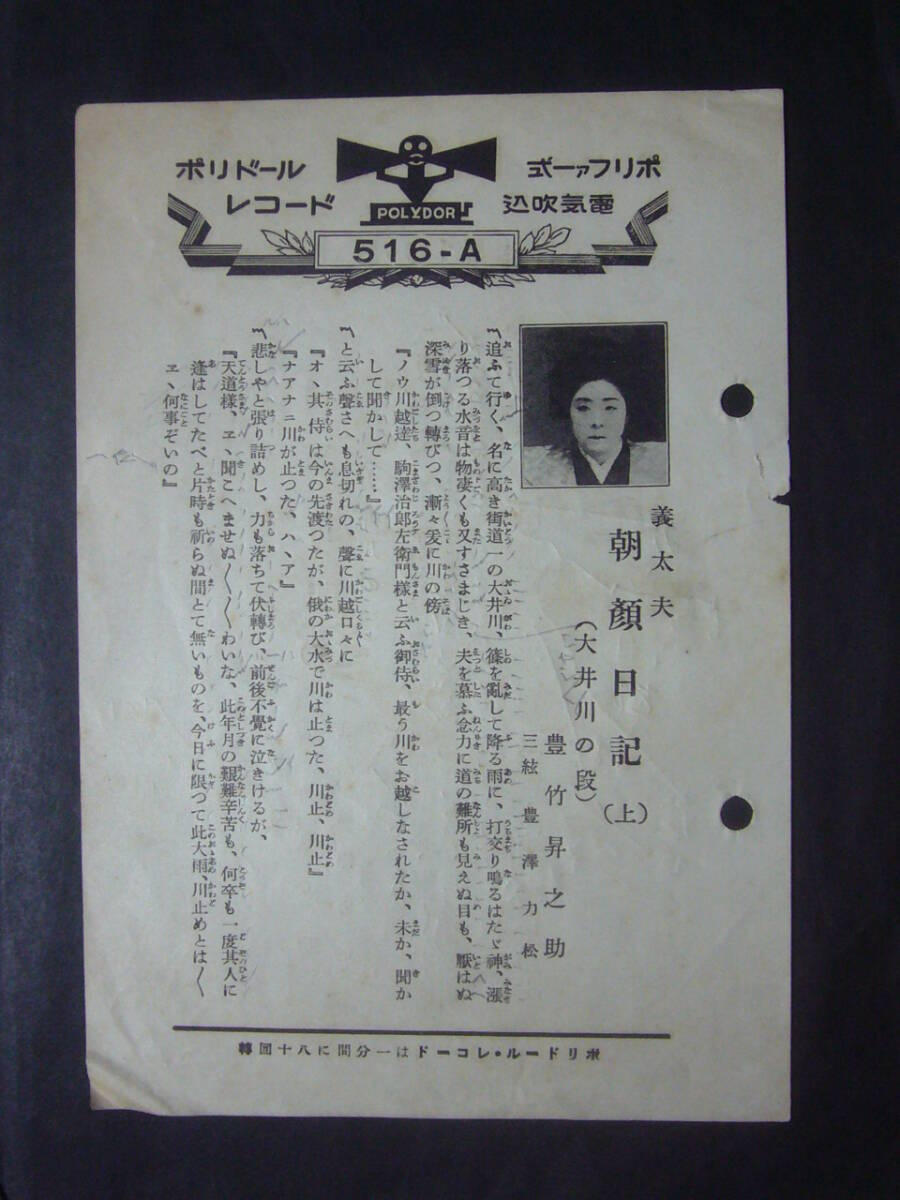 ポリファー式
電気吹込
ポリドール
レコード
POLYDOR
516-A
義太夫
朝顔日記(上)
(大井川の段)
豊竹昇之助
三絃 豊澤力松
〽追ふて行く、名に高き街道一の大井川、篠を亂して降る雨に、打交り鳴るはたゞ神、漲
り落つる水音は物凄くも又すさまじき、夫を慕ふ念力に道の難所も見えぬ目も、厭はぬ
深雪が倒つ轉びつ、漸々爰に川の傍
『ノウ川越達、駒澤治郎左衛門様と云ふ御侍、最う川をお越しなされたか、未か、聞か
して聞かして……』
〽と云ふ聲さへも息切れの、聲に川越口々に
『オヽ其侍は今の先渡つたが、俄の大水で川は止つた、川止、川止』
『ナアナニ川が止つた、ハヽア』
〽悲しやと張り詰めし、力も落ちて伏轉び、前後不覺に泣きけるが、
『天道様、ヱヽ聞こへませぬ〱〱わいな、此年月の艱難辛苦も、何卒も一度其人に
逢はしてたべと片時も祈らぬ間とて無いものを、今日に限つて此大雨、川止めとは〱
ヱヽ何事ぞいの』
ポリドール・レコードは一分間に八十回轉